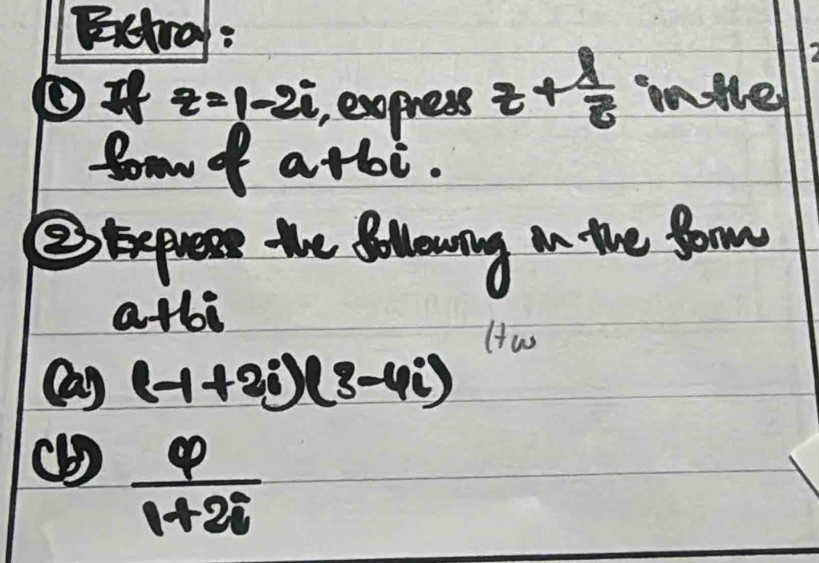 Extra:
① If z=1-2i, express z + 1/z in the
form of a+bi.
② Express the following in the form
a+bi
Hw
(a) (-1+2i)(3-4i)
(b) 4/1+2i